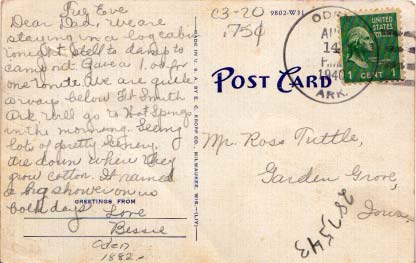 Tues Eve
Dear Dad, we are
staying in a log cabin
tonight. Still to damp to
camp out. Gave a 1.00 for
one tonite. We are quite
a ways below Ft Smith
Ark. will go to Hot Springs
in the morning. Seeing
lots of pretty scenery.
Are down where they
grow cotton. It rained
a big shower on us
both days
GREETINGS FROM
Love
Bessie
Oden
1882-
C3-20
9802-W31
.75¢
MADE IN U.S.A. BY E. C. KROPP CO., MILWAUKEE, WIS.
POST CARD
ODEN
AUG
14
P.M.
1940
ARK.
UNITED
STATES
1 CENT 1
Mr. Ross Tuttle,
Garden Grove,
Iowa.
287543